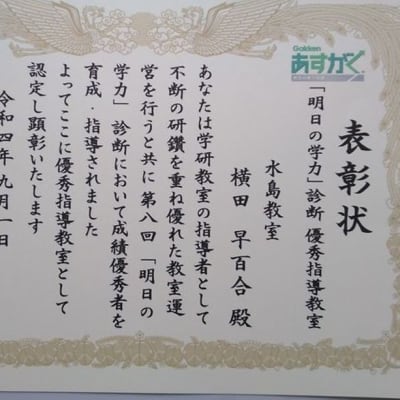 Gakken
あすがく
表彰状
「明日の学力」診断 優秀指導教室
水島教室
横田 早百合 殿
あなたは学研教室の指導者として
不断の研鑽を重ね優れた教室運
営を行うと共に 第八回 「明日の
学力」 診断において成績優秀者を
育成・指導されました
よってここに優秀指導教室として
認定し顕彰いたします
令和四年 九月一日